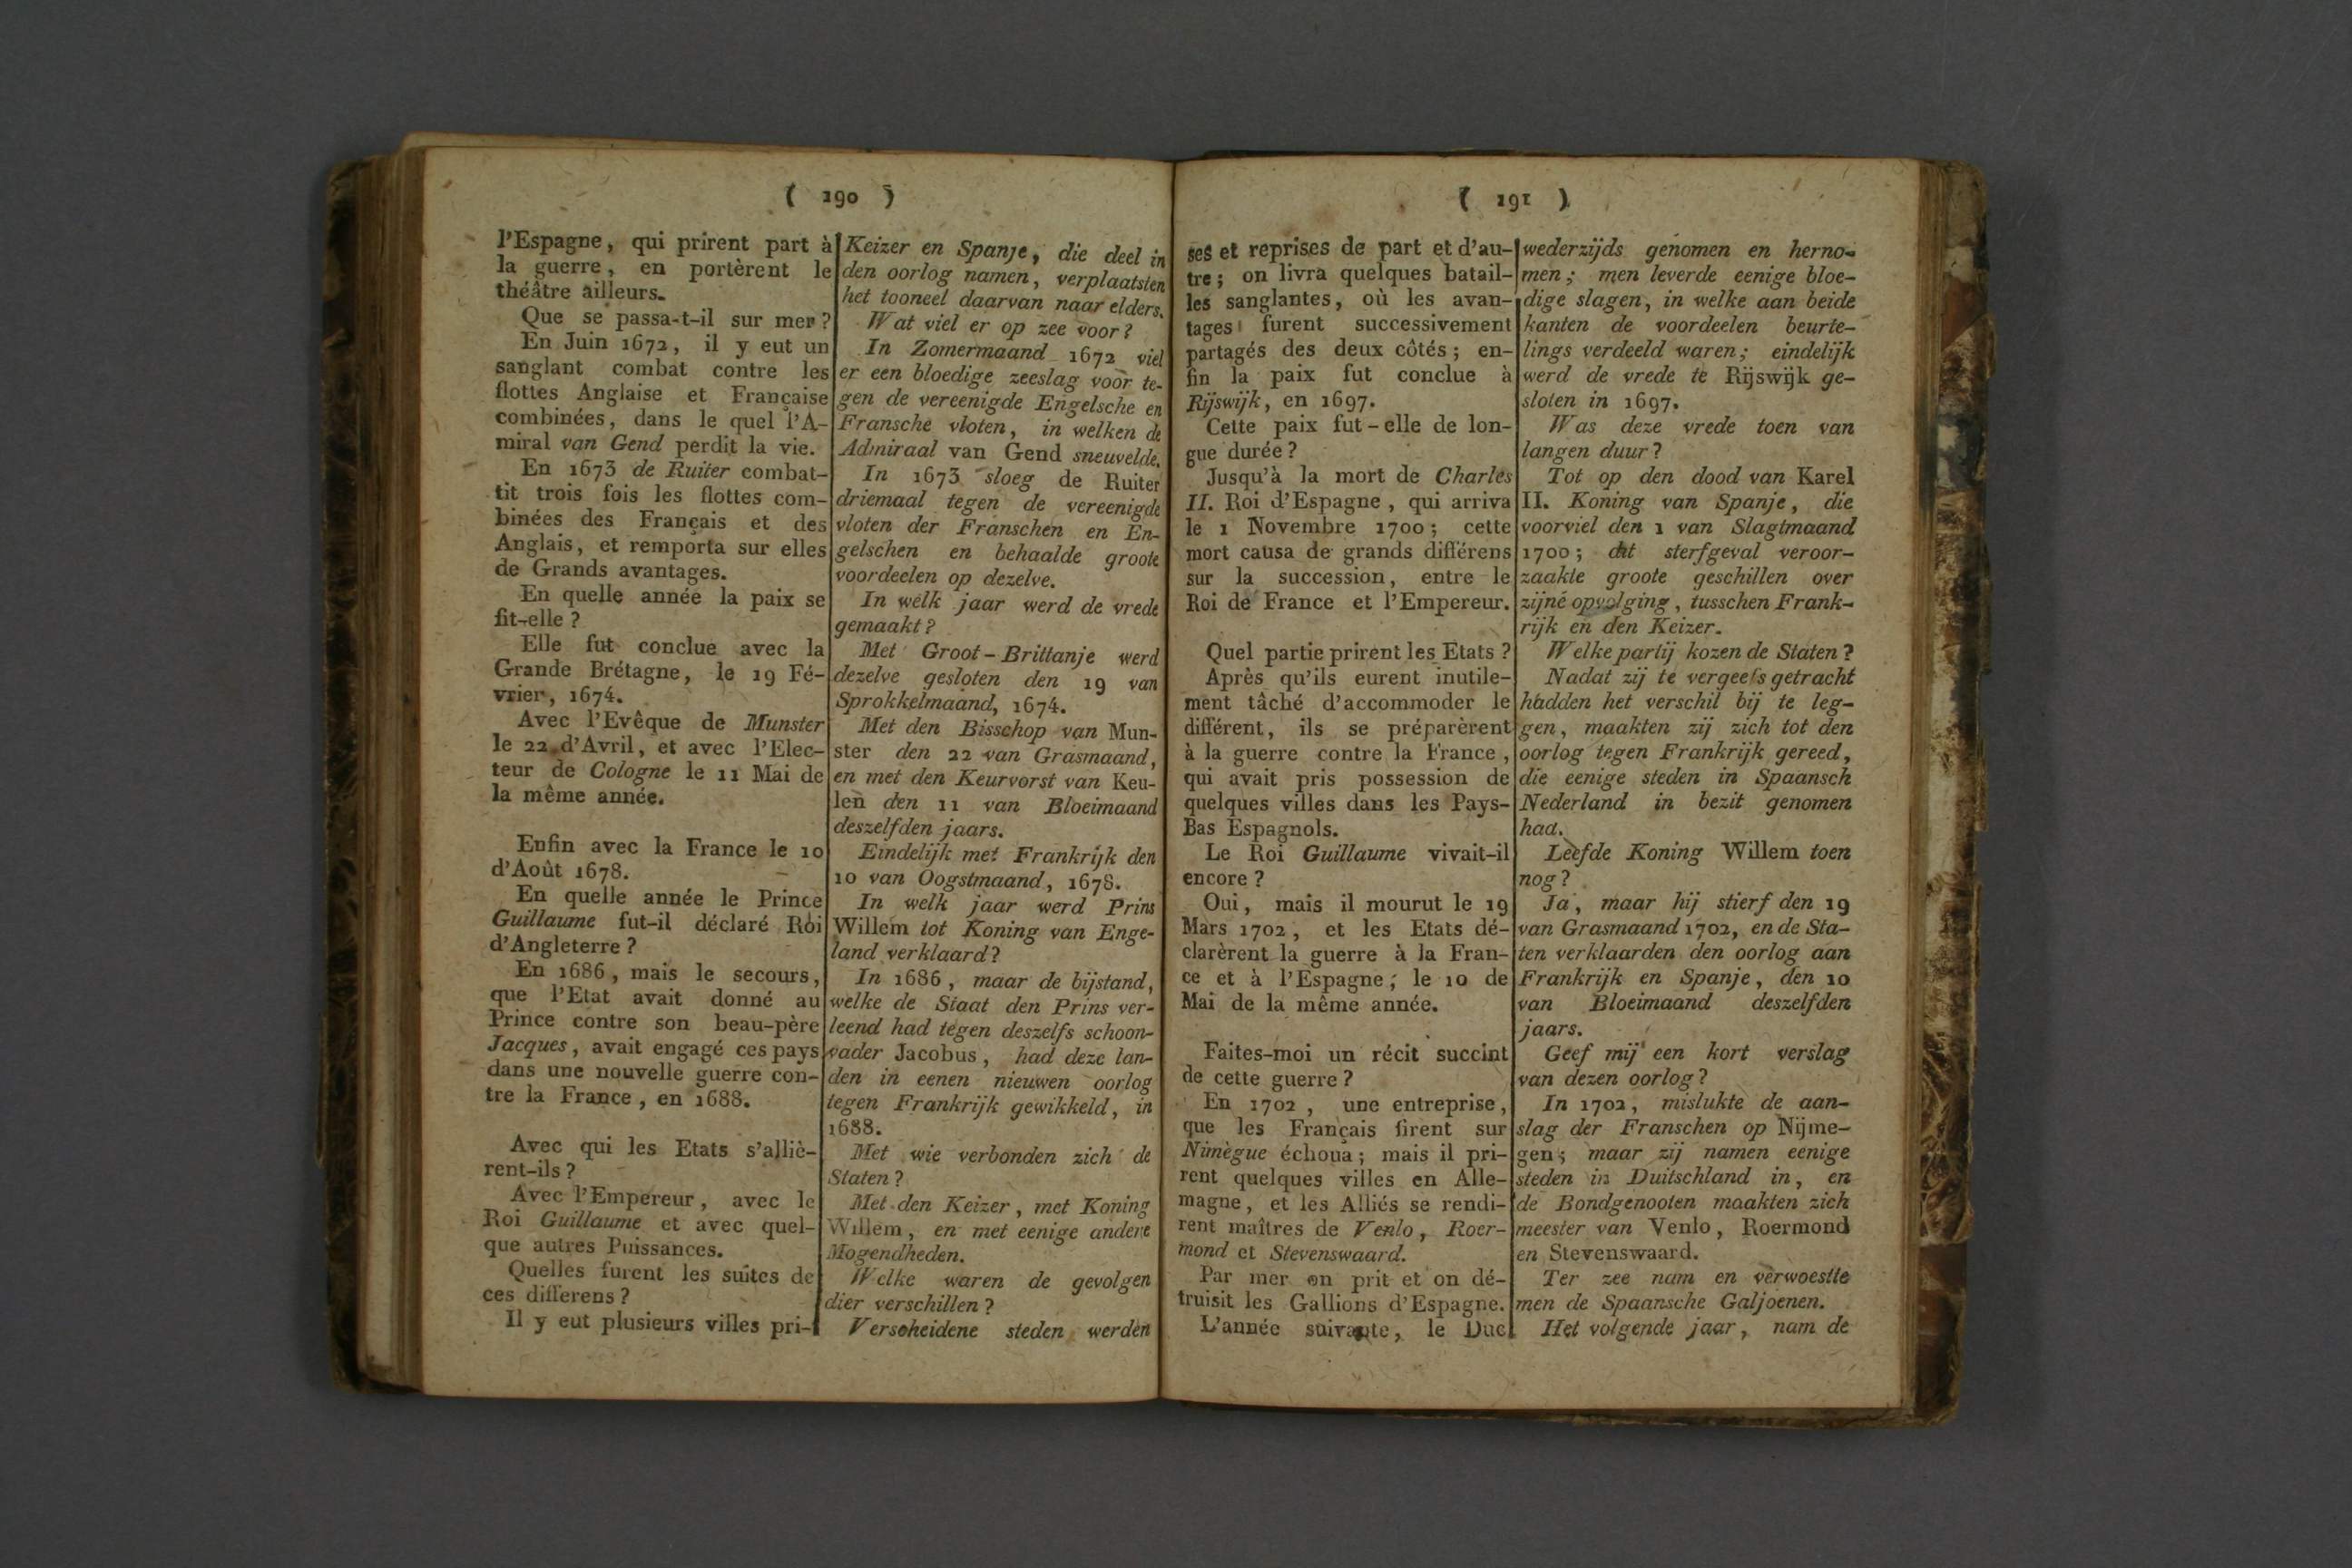 ( 190 )
l'Espagne, qui prirent part à
la guerre, en portèrent le
théâtre ailleurs.
Que se passa-t-il sur mer?
En Juin 1672, il y eut un
sanglant combat contre les
flottes Anglaise et Française
combinées, dans le quel l'A-
miral van Gend perdit la vie.
En 1673 de Ruiter combat-
tit trois fois les flottes com-
binées des Français et des
Anglais, et remporta sur elles
de Grands avantages.
En quelle année la paix se
fit-elle ?
Elle fut conclue avec la
Grande Brétagne, le 19 Fé-
vrier, 1674.
Avec l'Evêque de Munster
le 22 d'Avril, et avec l'Elec-
teur de Cologne le 11 Mai de
la même année.
Enfin avec la France le 10
d'Août 1678.
En quelle année le Prince
Guillaume fut-il déclaré Roi
d'Angleterre ?
En 1686, mais le secours,
que l'Etat avait donné au
Prince contre son beau-père
Jacques, avait engagé ces pays
dans une nouvelle guerre con-
tre la France, en 1688.
Avec qui les Etats s'alliè-
rent-ils ?
Avec l'Empereur, avec le
Roi Guillaume et avec quel-
que autres Puissances.
Quelles furent les suites de
ces differens ?
Il y eut plusieurs villes pri-
Keizer en Spanje, die deel in
den oorlog namen, verplaatsten
het tooneel daarvan naar elders.
Wat viel er op zee voor?
In Zomermaand 1672 viel
er een bloedige zeeslag voor te-
gen de vereenigde Engelsche en
Fransche vloten, in welken de
Admiraal van Gend sneuvelde.
In 1673 sloeg de Ruiter
driemaal tegen de vereenigde
vloten der Franschen en En-
gelschen en behaalde groote
voordeelen op dezelve.
In welk jaar werd de vrede
gemaakt?
Met Groot-Brittanje werd
dezelve gesloten den 19 van
Sprokkelmaand, 1674.
Met den Bisschop van Mun-
ster den 22 van Grasmaand,
en met den Keurvorst van Keu-
len den 11 van Bloeimaand
deszelfden jaars.
Eindelijk met Frankrijk den
10 van Oogstmaand, 1678.
In welk jaar werd Prins
Willem tot Koning van Enge-
land verklaard?
In 1686, maar de bijstand,
welke de Staat den Prins ver-
leend had tegen deszelfs schoon-
vader Jacobus, had deze lan-
den in eenen nieuwen oorlog
tegen Frankrijk gewikkeld, in
1688.
Met wie verbonden zich de
Staten?
Met den Keizer, met Koning
Willem, en met eenige andere
Mogendheden.
Welke waren de gevolgen
dier verschillen?
Verscheidene steden werden
( 191 )
ses et reprises de part et d'au-
tre; on livra quelques batail-
les sanglantes, où les avan-
tages furent successivement
partagés des deux côtés; en-
fin la paix fut conclue à
Rijswijk, en 1697.
Cette paix fut-elle de lon-
gue durée?
Jusqu'à la mort de Charles
II. Roi d'Espagne, qui arriva
le 1 Novembre 1700; cette
mort causa de grands différens
sur la succession, entre le
Roi de France et l'Empereur.
Quel partie prirent les Etats?
Après qu'ils eurent inutile-
ment tâché d'accommoder le
différent, ils se préparèrent
à la guerre contre la France,
qui avait pris possession de
quelques villes dans les Pays-
Bas Espagnols.
Le Roi Guillaume vivait-il
encore?
Oui, mais il mourut le 19
Mars 1702, et les Etats dé-
clarèrent la guerre à la Fran-
ce et à l'Espagne; le 10 de
Mai de la même année.
Faites-moi un récit succint
de cette guerre?
En 1702, une entreprise,
que les Français firent sur
Nimègue échoua; mais il pri-
rent quelques villes en Alle-
magne, et les Alliés se rendi-
rent maîtres de Venlo, Roer-
mond et Stevenswaard.
Par mer on prit et on dé-
truisit les Gallions d'Espagne.
L'année suivante, le Duc
wederzijds genomen en herno-
men; men leverde eenige bloe-
dige slagen, in welke aan beide
kanten de voordeelen beurte-
lings verdeeld waren; eindelijk
werd de vrede te Rijswijk ge-
sloten in 1697.
Was deze vrede toen van
langen duur?
Tot op den dood van Karel
II. Koning van Spanje, die
voorviel den 1 van Slagtmaand
1700; dit sterfgeval veroor-
zaakte groote geschillen over
zijne opvolging, tusschen Frank-
rijk en den Keizer.
Welke partij kozen de Staten?
Nadat zij te vergeefs getracht
hadden het verschil bij te leg-
gen, maakten zij zich tot den
oorlog tegen Frankrijk gereed,
die eenige steden in Spaansch
Nederland in bezit genomen
had.
Leefde Koning Willem toen
nog?
Ja, maar hij stierf den 19
van Grasmaand 1702, en de Sta-
ten verklaarden den oorlog aan
Frankrijk en Spanje, den 10
van Bloeimaand deszelfden
jaars.
Geef mij een kort verslag
van dezen oorlog?
In 1702, mislukte de aan-
slag der Franschen op Nijme-
gen; maar zij namen eenige
steden in Duitschland in, en
de Bondgenooten maakten zich
meester van Venlo, Roermond
en Stevenswaard.
Ter zee nam en verwoestte
men de Spaansche Galjoenen.
Het volgende jaar, nam de